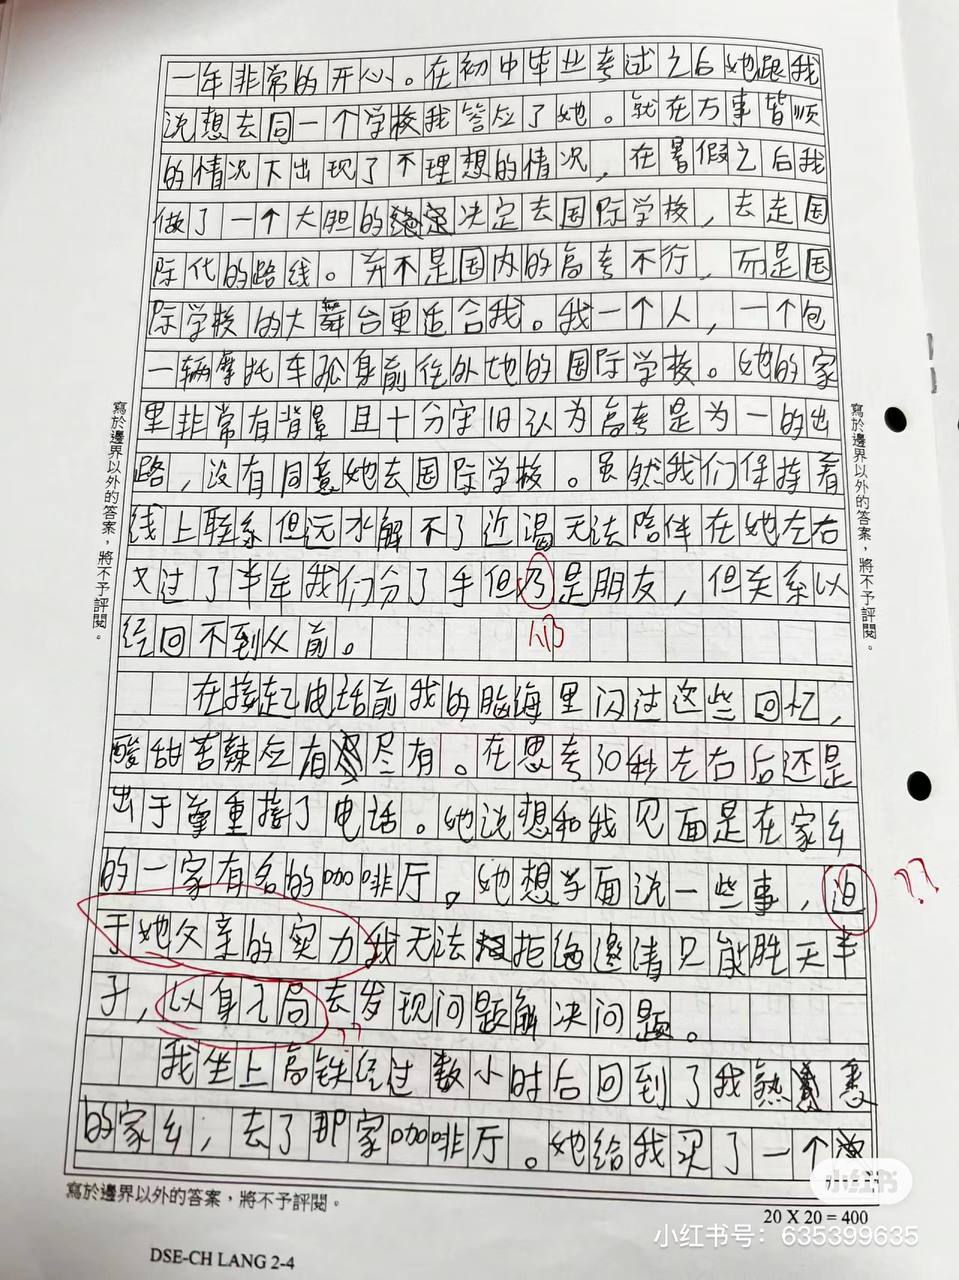 一年非常的开心。在初中毕业考试之后她跟我
说想去同一个学校我答应了她。就在万事皆顺
的情况下出现了不理想的情况，在暑假之后我
做了一个大胆的决定去国际学校，去走国
际化的路线。并不是国内的高考不行，而是国
际学校的大舞台更适合我。我一个人，一个包
一辆摩托车孤身前往外地的国际学校。她的家
里非常有背景且十分守旧认为高考是为一的出
路，没有同意她去国际学校。虽然我们保持着
线上联系但远水解不了近渴无法陪伴在她左右
又过了半年我们分了手但乃是朋友，但关系以
仍
经回不到从前。
在接起电话前我的脑海里闪过这些回忆，
酸甜苦辣应有尽有。在思考30秒左右后还是
出于尊重接了电话。她说想和我见面是在家乡
的一家有名的咖啡厅。她想当面说一些事，迫
??
于她父亲的实力我无法拒绝邀请只能胜天半
子，以身入局去发现问题解决问题。
??
我坐上高铁经过数小时后回到了我熟悉
的家乡；去了那家咖啡厅。她给我买了一个
寫於邊界以外的答案，將不予評閱。
寫於邊界以外的答案，將不予評閱。
寫於邊界以外的答案，將不予評閱。
20 X 20 = 400
DSE-CH LANG 2-4
小红书
小红书号：635399635